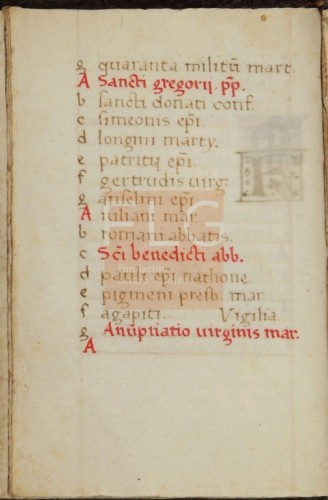 g quaranta militũ mart.
A Sancti gregorij. p̄p.
b sancti donati conf.
c simeonis ep̄i.
d longini marty.
e patritij ep̄i.
f gertrudis virg:
g anselmi ep̄i
A iuliani mar.
b romani abbatis.
c Sc̄i benedicti abb.
d pauli ep̄i nathone
e pigmeni presb. mar
f agapiti. Vigilia.
g Anũptiatio uirginis mar.
A